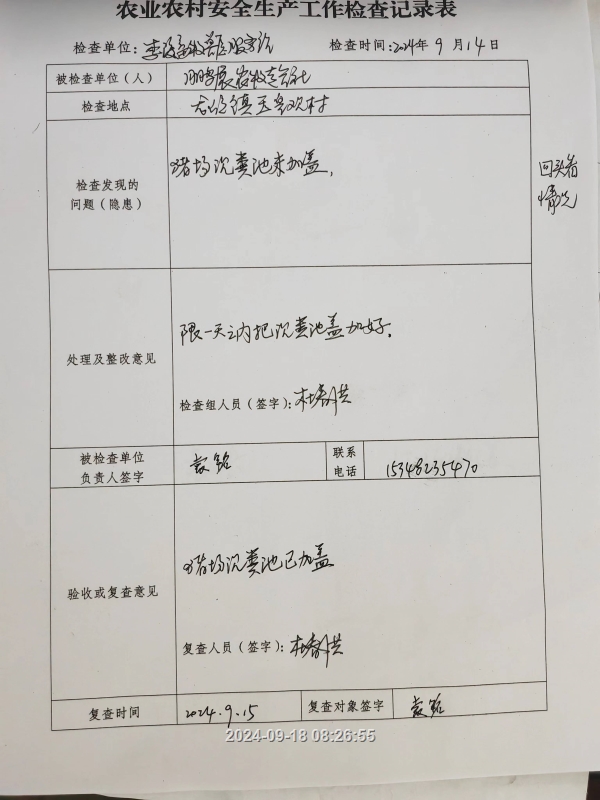 农业农村安全生产工作检查记录表
检查单位: 检查时间:2024年9月14日
被检查单位(人)
检查地点 村
检查发现的
问题(隐患)
猪场沉粪池未加盖.
回头看
情况
处理及整改意见
限一天之内把沉粪池盖加好.
检查组人员(签字):
被检查单位
负责人签字
袁铭
联系
电话
15348235470
验收或复查意见
猪场沉粪池已加盖
复查人员(签字):
复查时间 2024.9.15 复查对象签字 袁铭
2024-09-18 08:26:55